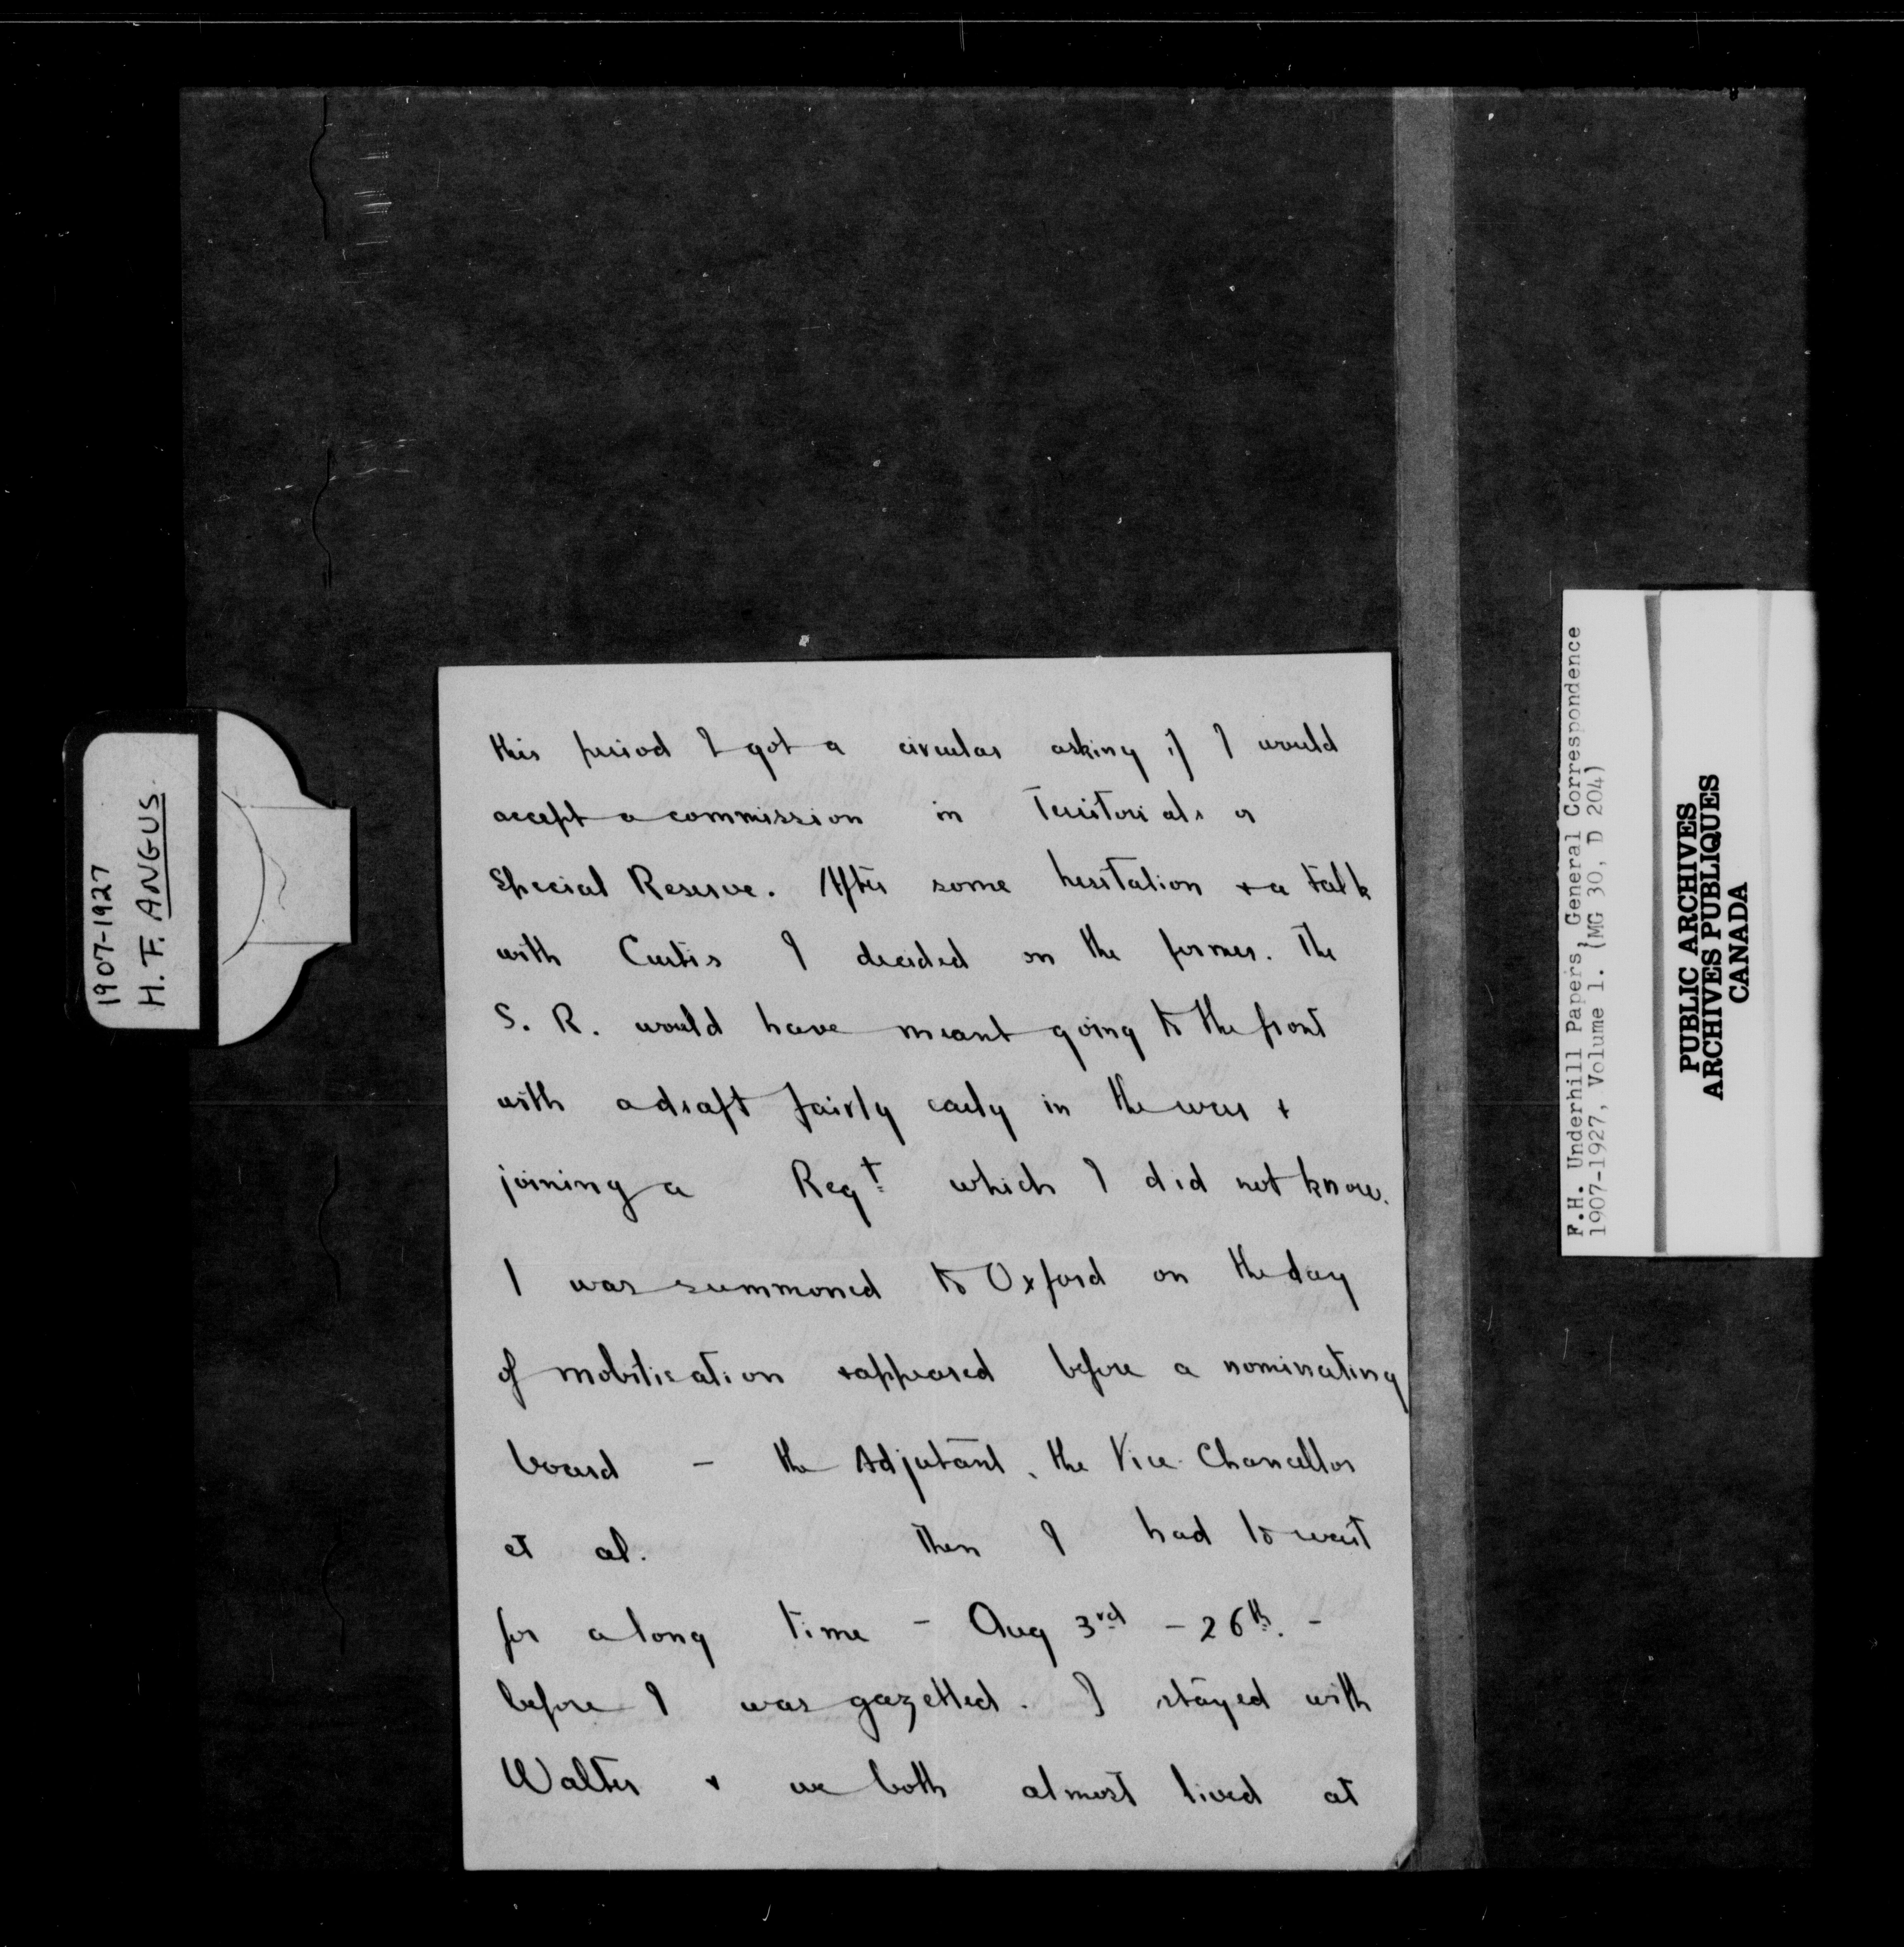 this period I got a circular asking if I would
accept a commission in Territorials or
Special Reserve. After some hesitation & a talk
with Curtis I decided on the former. The
S. R. would have meant going to the front
with a draft fairly early in the war &
joining a Regt which I did not know.
I was summoned to Oxford on the day
of mobilisation & appeared before a nominating
board – the Adjutant, the Vice-Chancellor
et al. Then I had to wait
for a long time – Aug 3rd – 26th. –
before I was gazetted. I stayed with
Walter & we both almost lived at
1907-1927
H. F. ANGUS.
F.H. Underhill Papers, General Correspondence
1907-1927, Volume 1. (MG 30, D 204)
PUBLIC ARCHIVES
ARCHIVES PUBLIQUES
CANADA